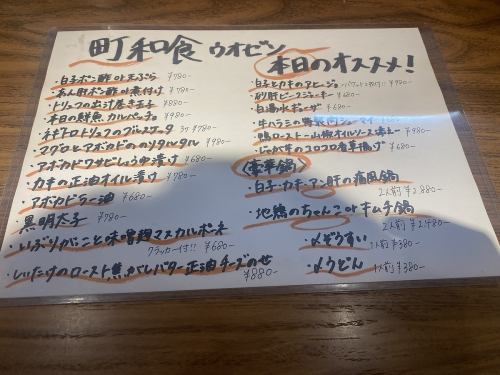 町和食 ウオゼン
本日のオススメ!
・白子ポン酢 or 天ぷら ¥780-
・あん肝ポン酢 or 煮付け ¥780-
・トリュフの出汁巻き玉子 ¥880-
・本日の鮮魚 カルパッチョ ¥980-
・ネギトロトリュフのブルスケッタ 3ヶ ¥780-
・マグロとアボカドのタルタル ¥980-
・アボカドワサビしょうゆ漬け ¥680-
・カキの正油オイル漬け ¥780-
・アボカドラー油 ¥680-
・黒明太子 ¥780-
・いぶりがっこと味噌麹マスカルポーネ
クラッカー付!! ¥680-
・しいたけのロースト焦がしバター正油チーズのせ
¥880-
・白子とカキのアヒージョ ¥980-
・砂肝ビーフジャーキー ¥680-
・白湯水ギョーザ ¥680-
・牛ハラミの ¥980-
・鴨ロースト 山椒オイルソース添え ¥980-
・じゃが芋のコロコロ唐草揚げ ¥680-
〈豪華鍋〉
・白子・カキ・アン肝の痛風鍋
2人前 ¥2,880-
・地鶏のちゃんこ or キムチ鍋
2人前 ¥2,480-
・〆ぞうすい 1人前 ¥380-
・〆うどん 1人前 ¥380-